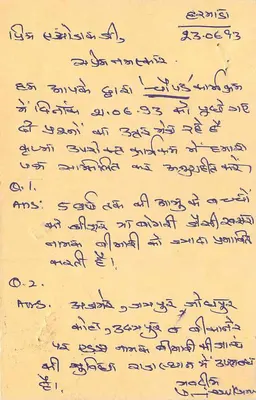 हरमाड़ा
प्रिय 23.0693
सप्रेम नमस्कार
हम आपके द्वारा कार्यक्रम
में दिनांक 21.06.93 को पूछे गए
दो प्रश्नों का उत्तर भेज रहे है
कृपया उपरोक्त कार्यक्रम में हमारा
पत्र सम्मिलित कर अनुग्रहीत करें।
Q.1.
Ans: 5 वर्ष तक की आयु के बच्चों
को
नामक बीमारी को ज्यादा प्रभावित
करती है।
Q.2.
Ans. अजमेर, जयपुर जोधपुर
कोटा, उदयपुर व बीकानेर
पर एड्स नामक बीमारी की जाँच
की सुविधा राजस्थान में उपलब्ध
है।